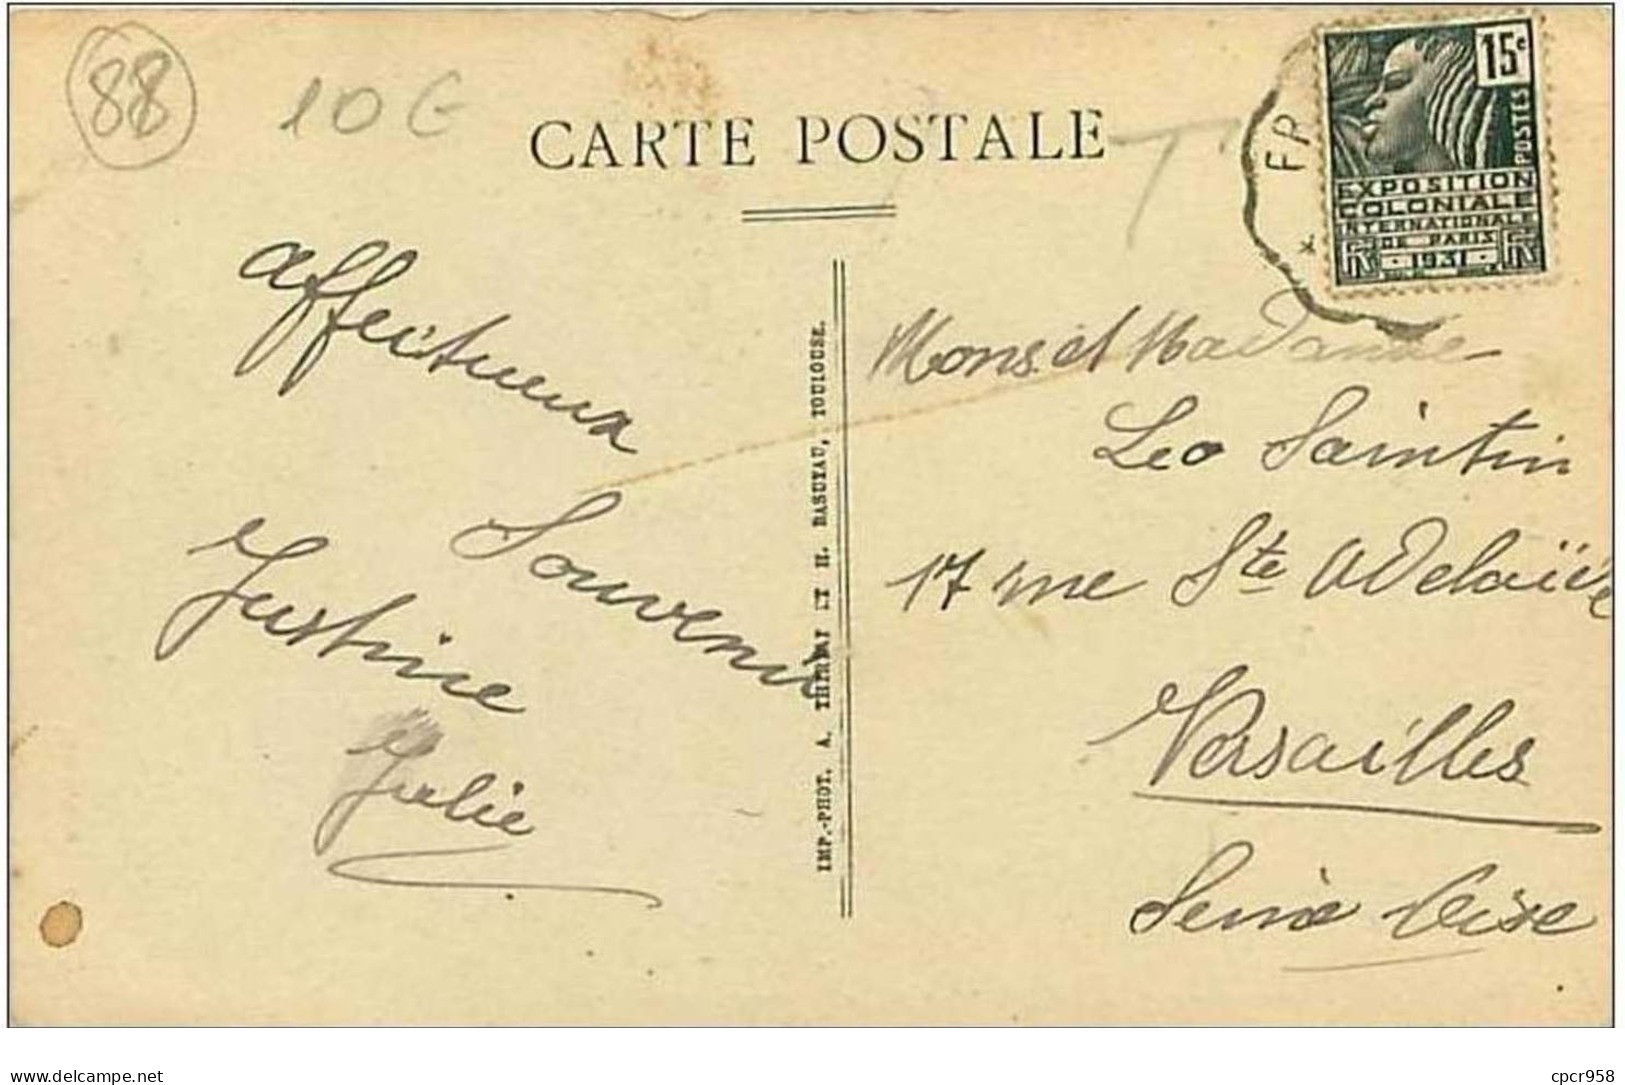 88
10 €
CARTE POSTALE
T
FR
*
15c
POSTES
EXPOSITION
COLONIALE
INTERNATIONALE
DE PARIS
1931
affectueux
Souvenir
Justine
Julie
IMP.-PHOT. A. THIRIAT ET H. BASUYAU, TOULOUSE.
Mons et Madame
Leo Saintin
17 rue Ste Adelaïde
Versailles
Seine Oise
delcampe.net
cpcr958